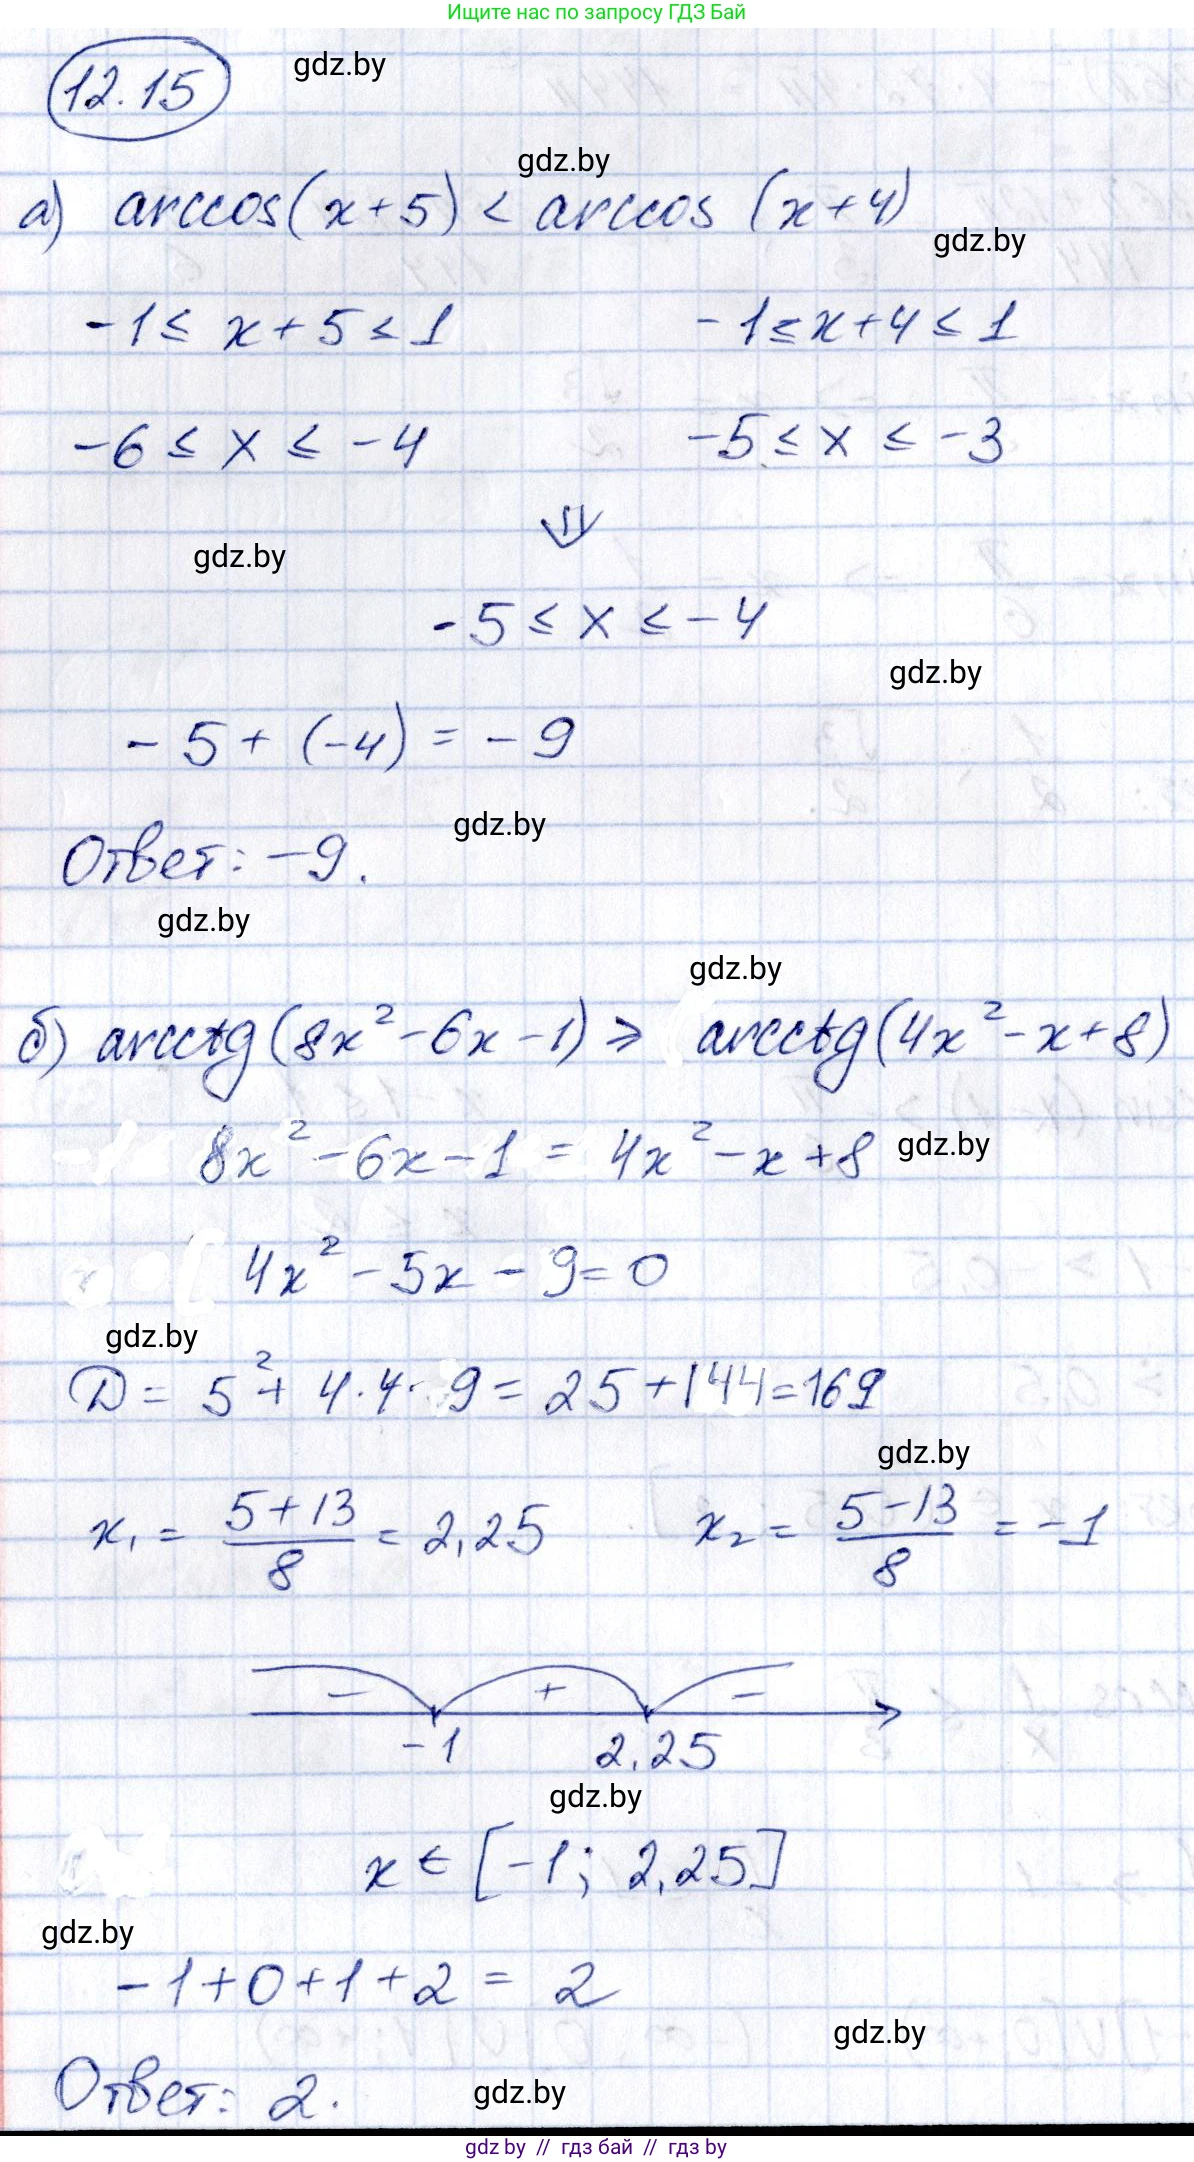 Ищите нас по запросу ГДЗ Бай
12.15
gdz.by
gdz.by
а) arccos(x+5) < arccos (x+4)
gdz.by
-1 ≤ x+5 ≤ 1 -1 ≤ x+4 ≤ 1
-6 ≤ x ≤ -4 -5 ≤ x ≤ -3
⇓
gdz.by
-5 ≤ x ≤ -4
gdz.by
-5 + (-4) = -9
gdz.by
Ответ: -9.
gdz.by
gdz.by
б) arcctg(8x²-6x-1) ≥ arcctg(4x²-x+8)
8x²-6x-1 = 4x²-x+8
gdz.by
4x²-5x-9=0
gdz.by
D = 5²+ 4·4·9 = 25+144=169
gdz.by
x₁ = (5+13)/8 = 2,25 x₂ = (5-13)/8 = -1
- + -
-1 2,25
gdz.by
x ∈ [-1; 2,25]
gdz.by
-1+0+1+2 = 2
gdz.by
Ответ: 2.
gdz.by
gdz by // гдз бай // гдз by